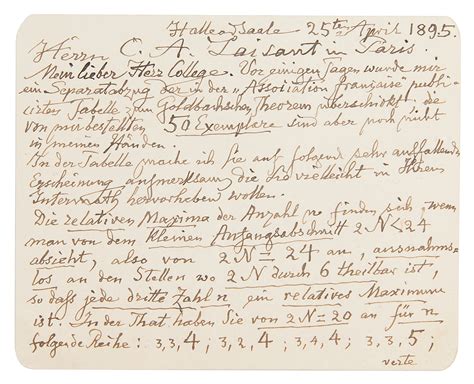 Halle a. d. Saale 25ten April 1895.
Herrn C. A. Laisant in Paris.
Mein lieber Herr College. Vor einigen Tagen wurde mir
ein Separatabzug der in der „Association française" publi-
cirten Tabelle zum Goldbachschen Theorem überschickt; die
von mir bestellten 50 Exemplare sind aber noch nicht
in meinen Händen.
In der Tabelle mache ich Sie auf folgend sehr auffallende
Erscheinung aufmerksam, die Sie vielleicht in Ihrem
hervorheben wollen.
Die relativen Maxima der Anzahl n finden sich, wenn
man von dem kleinen Anfangsabschnitt 2N<24
absieht, also von 2N=24 an, ausnahms-
los an den Stellen wo 2N durch 6 theilbar ist,
so dass jede dritte Zahl n ein relatives Maximum
ist. In der That haben Sie von 2N=20 an für n
folgende Reihe: 3,3,4; 3,2,4; 3,4,4; 3,3,5;
verte